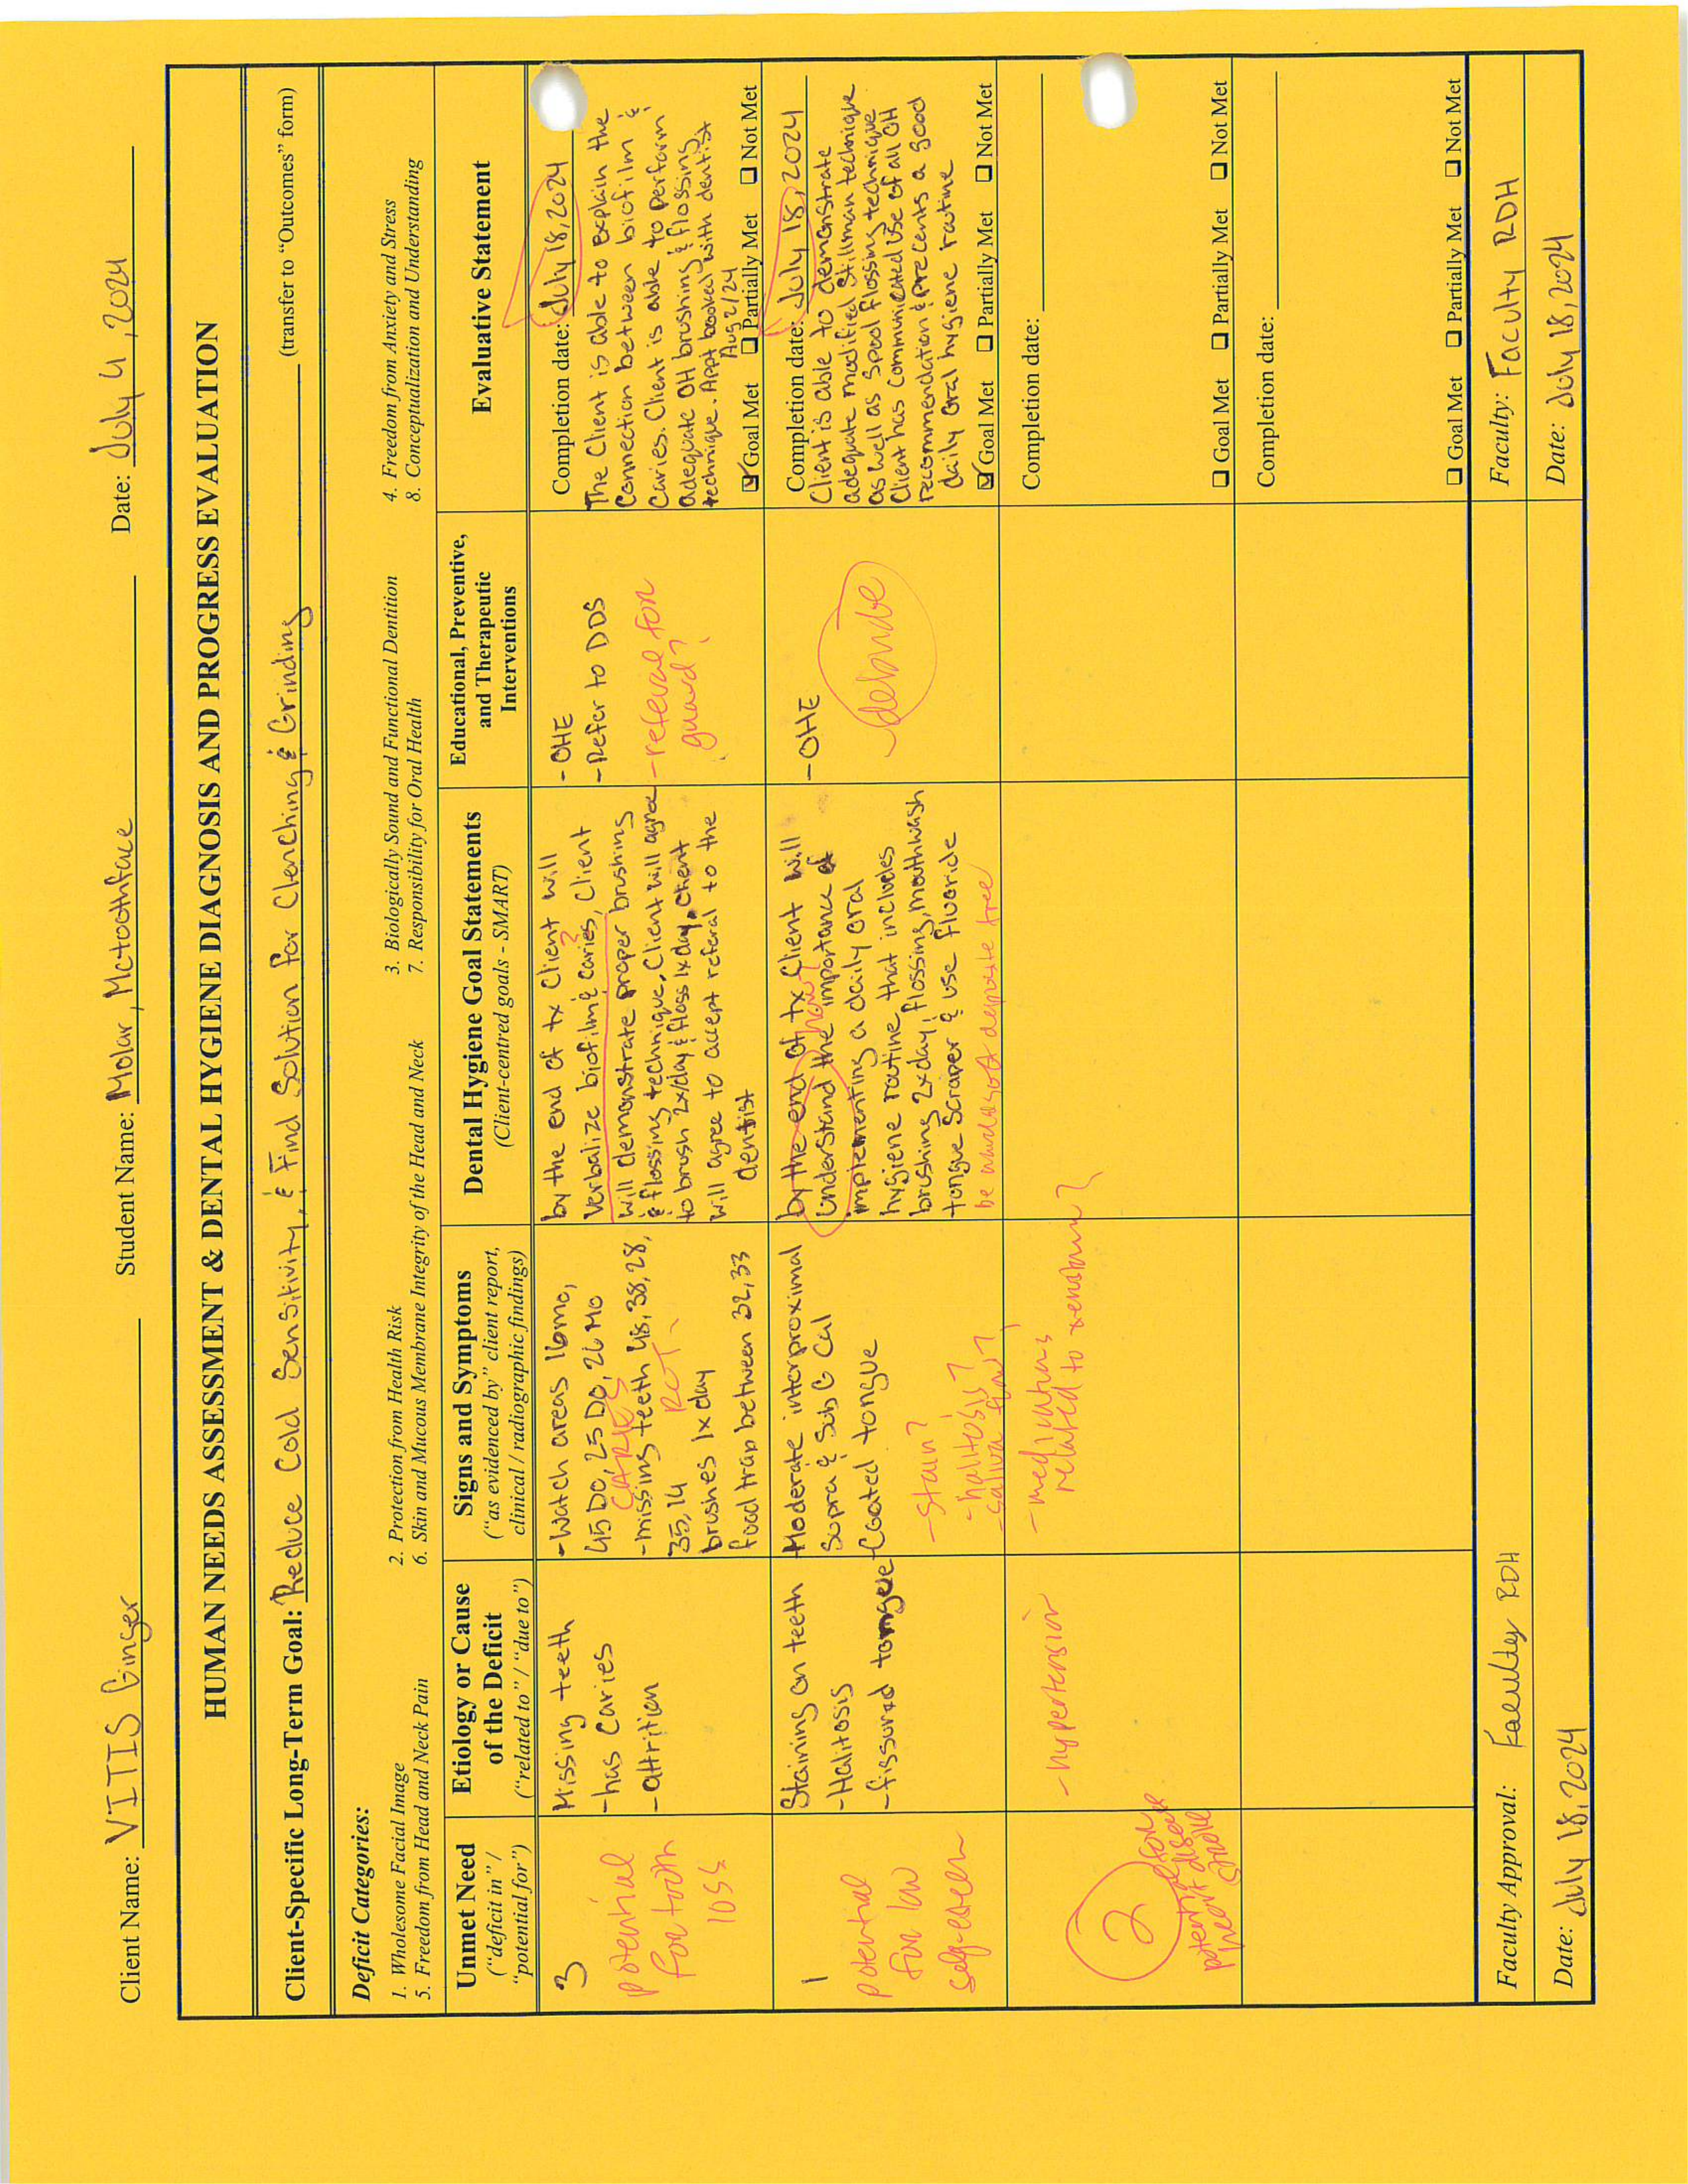 Client Name: VITIS Ginger Student Name: Molar, Mctoothface Date: July 4, 2024
HUMAN NEEDS ASSESSMENT & DENTAL HYGIENE DIAGNOSIS AND PROGRESS EVALUATION
Client-Specific Long-Term Goal: Reduce Cold Sensitivity, & Find Solution for Clenching & Grinding (transfer to “Outcomes” form)
Deficit Categories:
1. Wholesome Facial Image 2. Protection from Health Risk 3. Biologically Sound and Functional Dentition 4. Freedom from Anxiety and Stress
5. Freedom from Head and Neck Pain 6. Skin and Mucous Membrane Integrity of the Head and Neck 7. Responsibility for Oral Health 8. Conceptualization and Understanding
Unmet Need
(“deficit in” /
“potential for”)
Etiology or Cause
of the Deficit
(“related to” / “due to”)
Signs and Symptoms
(“as evidenced by” client report,
clinical / radiographic findings)
Dental Hygiene Goal Statements
(Client-centred goals - SMART)
Educational, Preventive,
and Therapeutic
Interventions
Evaluative Statement
3
potential
for tooth
loss
Missing teeth
-has Caries
-attrition
-Watch areas 16mo,
45 DO, 25 DO, 26 MO
CARIES
-missing teeth 48, 38, 28,
35, 14 RCT
brushes 1x day
food trap between 32, 33
by the end of tx Client will
verbalize biofilm & caries, Client
will demonstrate proper brushing
& flossing technique, Client will agree
to brush 2x/day & floss 1x day, Client
will agree to accept referal to the
dentist
- OHE
- Refer to DDS
- referal for
guard?
Completion date: July 18, 2024
The Client is able to explain the
Connection between biofilm &
Caries. Client is able to perform
adequate OH brushing & flossing
technique. Appt booked with dentist
Aug 2/24
☑ Goal Met ❑ Partially Met ❑ Not Met
1
potential
for low
self-esteem
Staining on teeth
-Halitosis
-fissured tongue
Moderate interproximal
Supra & Sub G Cal
-Coated tongue
-stain?
-halitosis?
-saliva flow?
by the end of tx Client will
how?
Understand the importance of
implementing a daily oral
hygiene routine that includes
brushing 2x day, flossing, mouthwash
tongue scraper & use fluoride
- OHE
debride
Completion date: July 18, 2024
Client is able to demonstrate
adequate modified Stillman technique
as well as Spool flossing technique
Client has Communicated Use of all OH
recommendation & precents a good
daily oral hygiene routine
☑ Goal Met ❑ Partially Met ❑ Not Met
2
for
potential
heart disease
stroke
-hypertension
-medications
related to
Completion date:
❑ Goal Met ❑ Partially Met ❑ Not Met
Completion date:
❑ Goal Met ❑ Partially Met ❑ Not Met
Faculty Approval: Faculty RDH Faculty: Faculty RDH
Date: July 18, 2024 Date: July 18, 2024